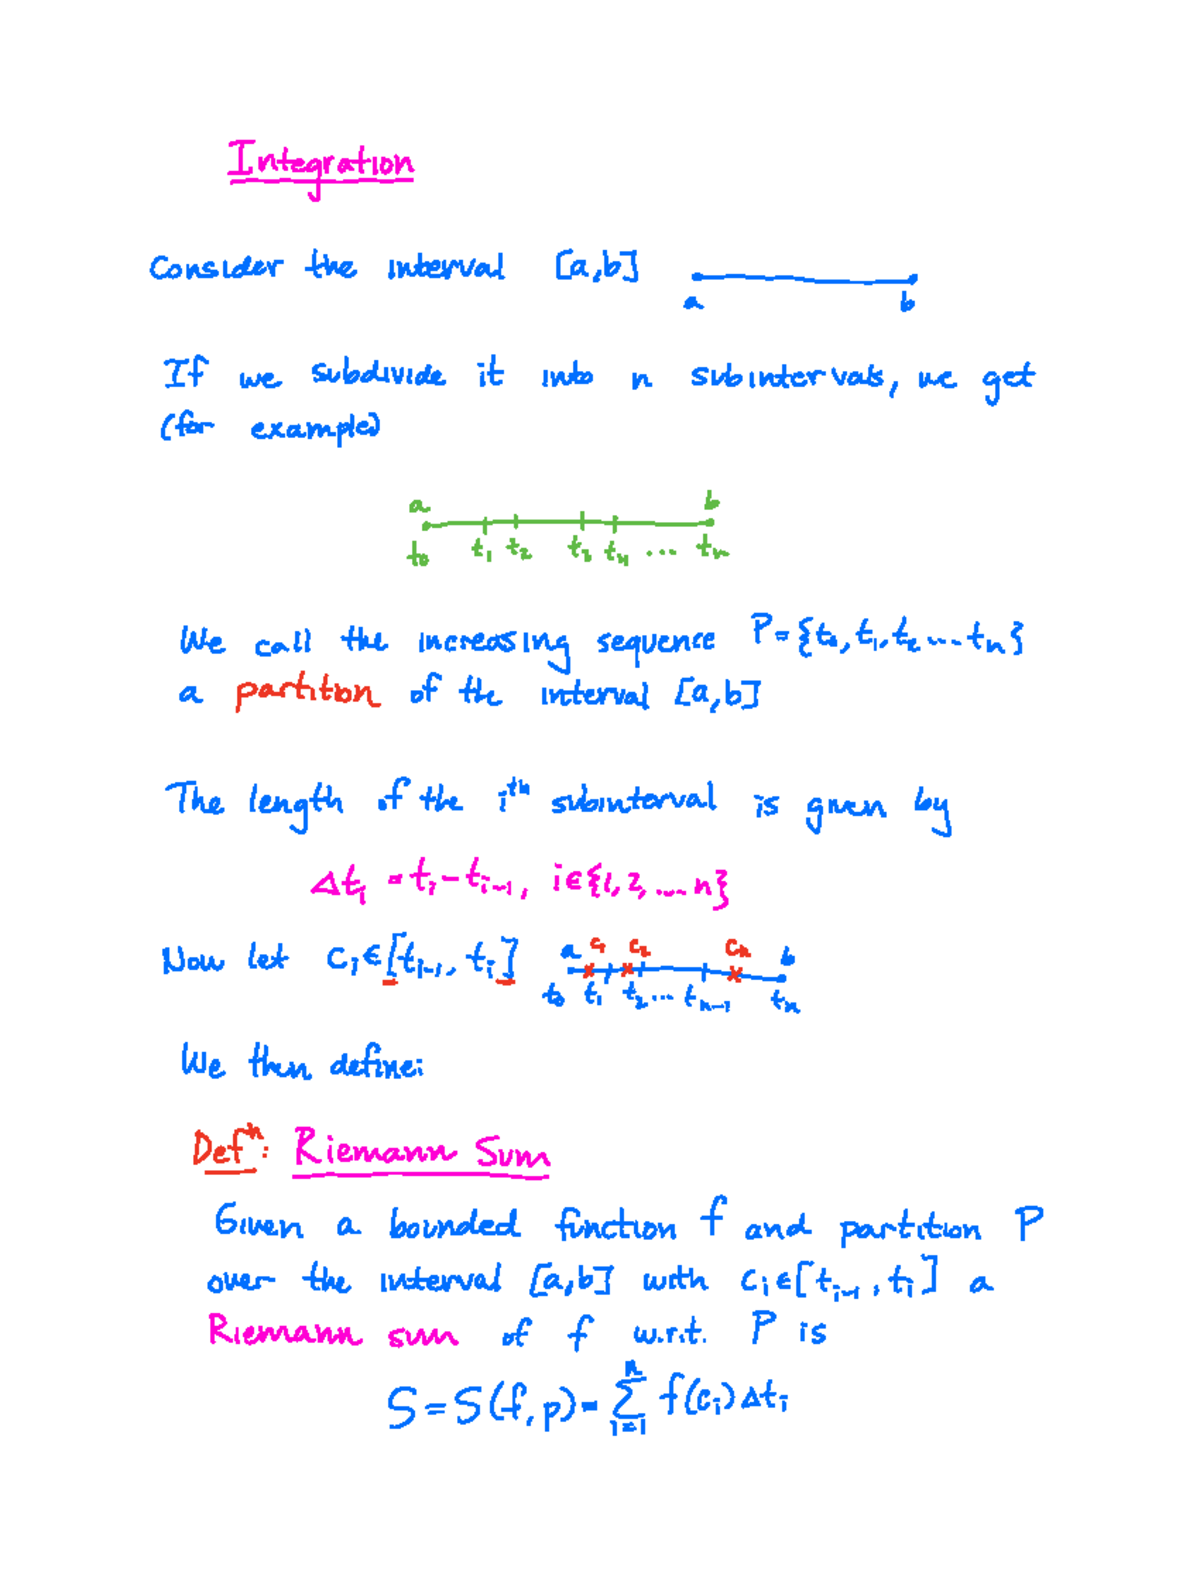 Integration
Consider the interval [a,b]
a b
If we subdivide it into n subintervals, we get
(for example)
a b
t₀ t₁ t₂ t₃ t₄ ... tₙ
We call the increasing sequence P={t₀,t₁,t₂...tₙ}
a partition of the interval [a,b]
The length of the iᵗʰ subinterval is given by
Δtᵢ = tᵢ-tᵢ₋₁, i∈{1,2,...n}
Now let cᵢ∈[tᵢ₋₁, tᵢ]
a c₁ c₂ cₙ b
t₀ t₁ t₂... tₙ₋₁ tₙ
We then define:
Defⁿ: Riemann Sum
Given a bounded function f and partition P
over the interval [a,b] with cᵢ∈[tᵢ₋₁, tᵢ] a
Riemann sum of f w.r.t. P is
S=S(f,p)=∑ᵢ₌₁ⁿ f(cᵢ)Δtᵢ